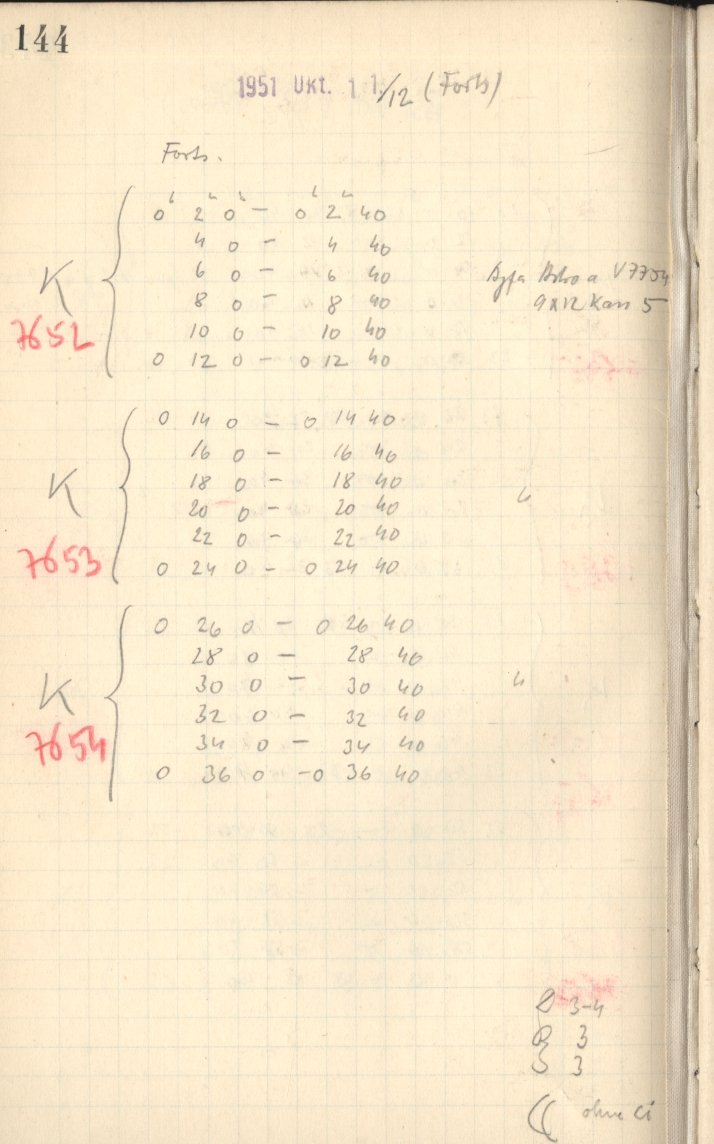 144
1951 Okt. 11./12 (Forts)
Forts.
0ʰ 2ᵐ 0ˢ – 0ʰ 2ᵐ 40
4 0 – 4 40
6 0 – 6 40
K 8 0 – 8 40
7652 10 0 – 10 40
0 12 0 – 0 12 40
Agfa Astro a V7754
9x12 Kass 5
0 14 0 – 0 14 40
16 0 – 16 40
K 18 0 – 18 40 "
20 0 – 20 40
7653 22 0 – 22 40
0 24 0 – 0 24 40
0 26 0 – 0 26 40
28 0 – 28 40
K 30 0 – 30 40 "
32 0 – 32 40
7654 34 0 – 34 40
0 36 0 – 0 36 40
3-4
3
S 3
(( ohne Ci